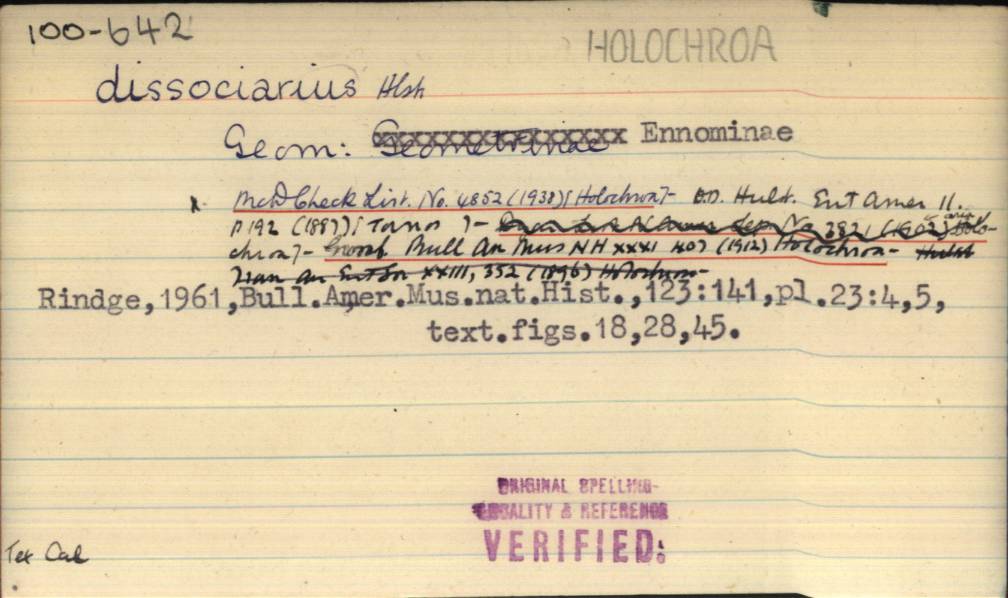 100-642
HOLOCHROA
dissociarius Hlst
Geom: Geometrinae Ennominae
x. McD Check List. No. 4852 (1938) [Holochroa]- O.D. Hulst. Ent Amer II.
p 192 (1887) [Tornos]- No 3821 (1902) Holo-
chroa]- Grossb. Bull Am Mus NH XXXI 407 (1912) Holochroa- Hulst
Tran Am Ent Soc XXIII, 352 (1896) Holochroa-
Rindge,1961,Bull.Amer.Mus.nat.Hist.,123:141,pl.23:4,5,
text.figs.18,28,45.
ORIGINAL SPELLING-
LOCALITY & REFERENCE
VERIFIED:
Tex Cal